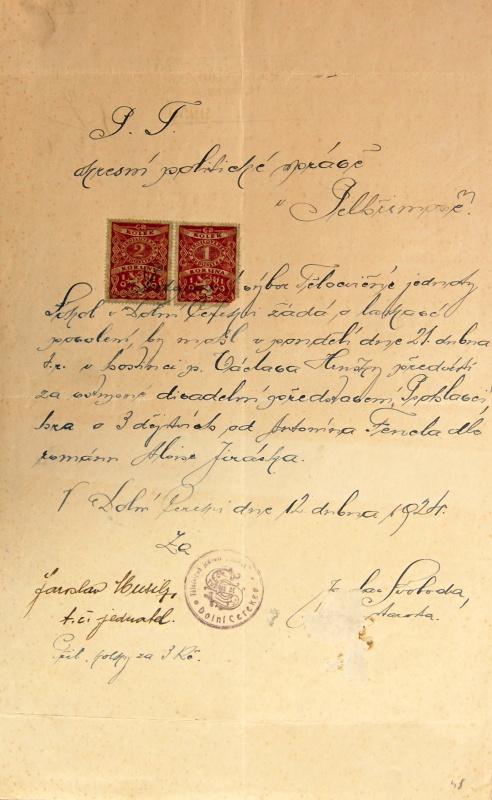 P. T.
okresní politické správě
v Pelhřimově.
ČS KOLEK
2
KORUNA
ČS KOLEK
1
KORUNA
výbor Tělocvičné jednoty
Sokol v Dolní Cerekvi žádá o laskavé
povolení, by mohl v pondělí dne 21. dubna
t.r. v hostinci p. Václava Hrušky předvésti
za vstupné divadelní představení Psohlavci
hra o 3 dějstvích od Antonína Fencla dle
románu Aloise Jiráska.
V Dolní Cerekvi dne 12. dubna 1924.
Za
Jaroslav Musil,
t. č. jednatel.
Svoboda,
starosta.
Dolní Cerekev
Příl. kolky za 3 Kč.
48